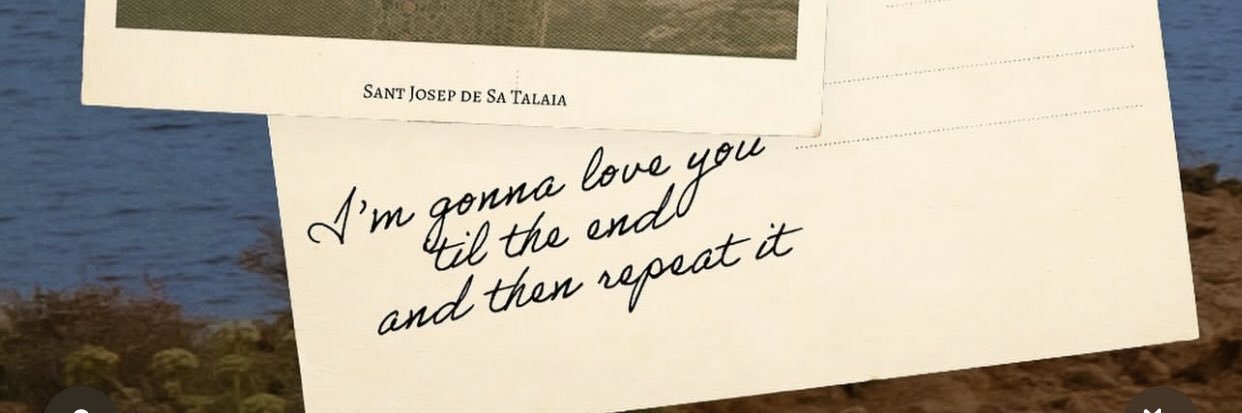 Sant Josep de Sa Talaia
I'm gonna love you
'til the end
and then repeat it